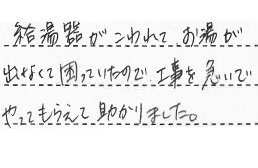 給湯器がこわれて、お湯が
出なくて困っていたので、工事を急いで
やってもらえて助かりました。